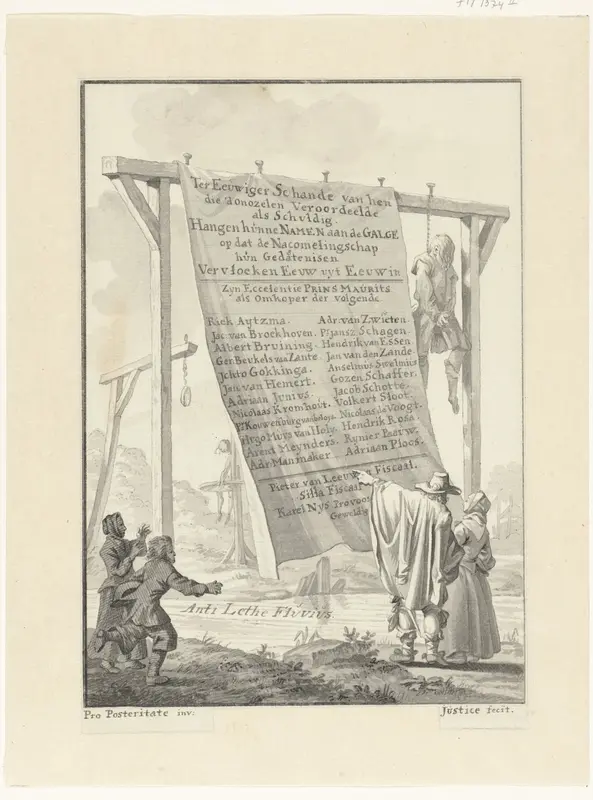 Ter Eeuwiger Schande van hen
die donozelen Veroordeelde
als Schuldig.
Hangen hunne NAMEN aan de GALGE
op dat de Nacomelingschap
hun Gedatenisen
Vervloeken Eeuw uyt Eeuw in
Zyn Eccelentie PRINS MAURITS
als Omkoper der volgende
Riek Aytzma. Adr. van Zwieten.
Jac van Broekhoven. P. Jansz Schagen.
Albert Bruining. Hendrik van Essen
Ger. Beukels van Zante. Jan van den Zande
Jchto Gokkinga. Anselmus Swelmius
Jan van Hemert. Gozen Schaffer.
Adriaan Junius. Jacob Schotte.
Nicolaas Kromhout. Volkert Sloot.
Pr. Kouwenburg Nicolaas de Voogt.
Hugo Muys van Holy. Hendrik Rosa.
Arent Meynders. Rynier Paauw.
Adr. Manmaker Adriaan Ploos.
Pieter van Leeuwen Fiscaal.
Silla Fiscaal
Karel Nys Provoost
Geweldig
Anti Lethe Flúvius.
Pro Posteritate inv: Justice fecit.